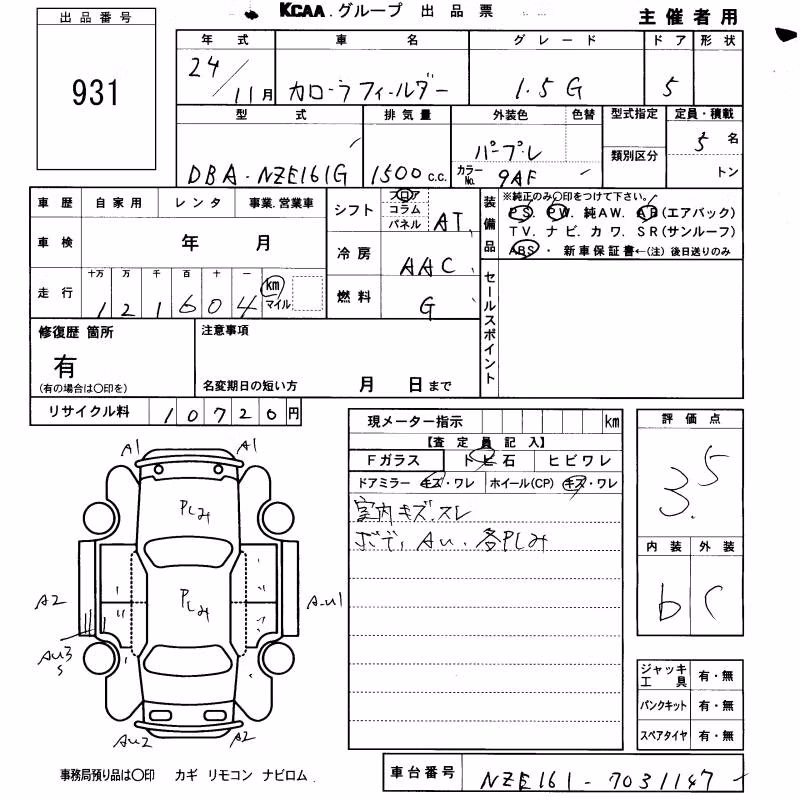 KCAA.グループ 出品票
主催者用
出品番号
931
年式 車名 グレード ドア 形状
24/11月 カローラフィールダー 1.5G 5
型式 排気量 外装色 色替 型式指定 定員・積載
DBA-NZE161G 1500c.c. パープル 5名
カラーNo. 9AF 類別区分 トン
車歴 自家用 レンタ 事業.営業車
車検 年 月
走行 十万 万 千 百 十 一
121604 km マイル
シフト フロア コラム パネル AT
冷房 AAC
燃料 G
装備品 ※純正のみ〇印をつけて下さい。
PS. PW. 純AW. AB(エアバック)
TV. ナビ. カワ. SR(サンルーフ)
ABS・新車保証書←(注)後日送りのみ
セールスポイント
修復歴 箇所
有
(有の場合は〇印を)
注意事項
名変期日の短い方 月 日まで
リサイクル料 10720円
現メーター指示 km
【査定員記入】
Fガラス トビ石 ヒビワレ
ドアミラー キズ・ワレ ホイール(CP) キズ・ワレ
室内キズ.スレ
ボデ, AU. 各PLみ
評価点
3.5
内装 外装
b C
A1 A1
PLみ
A2 PLみ A-U1
AU3
S
AU2 A2
ジャッキ工具 有・無
パンクキット 有・無
スペアタイヤ 有・無
事務局預り品は〇印 カギ リモコン ナビロム.
車台番号 NZE161-7031147